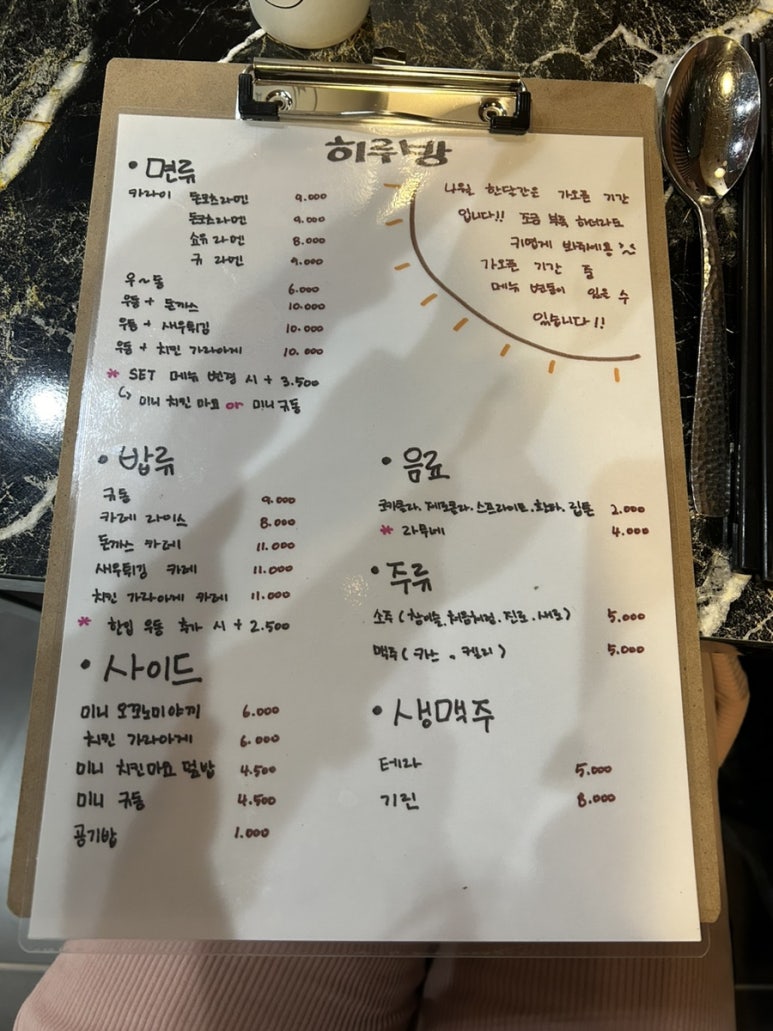 히루방
• 면류
카라이 돈코츠라멘 9.000
돈코츠라멘 9.000
쇼유 라멘 8.000
규 라멘 9.000
우~동 6.000
우동 + 돈까스 10.000
우동 + 새우튀김 10.000
우동 + 치킨 가라아게 10.000
* SET 메뉴 변경 시 + 3.500
↳ 미니 치킨 마요 or 미니 규동
나월 한달간은 가오픈 기간
입니다!! 조금 부족 하더라도
귀엽게 봐주세용
가오픈 기간 중
메뉴 변동이 있을 수
있습니다!!
• 밥류
규동 9.000
카레 라이스 8.000
돈까스 카레 11.000
새우튀김 카레 11.000
치킨 가라아게 카레 11.000
* 한입 우동 추가 시 + 2.500
• 사이드
미니 오코노미야끼 6.000
치킨 가라아게 6.000
미니 치킨마요 덮밥 4.500
미니 규동 4.500
공기밥 1.000
• 음료
코카콜라. 제로콜라. 스프라이트. 환타. 립톤 2.000
* 라무네 4.000
• 주류
소주 (참이슬. 처음처럼. 진로. 새로) 5.000
맥주 (카스 . 켈리) 5.000
• 생맥주
테라 5.000
기린 8.000